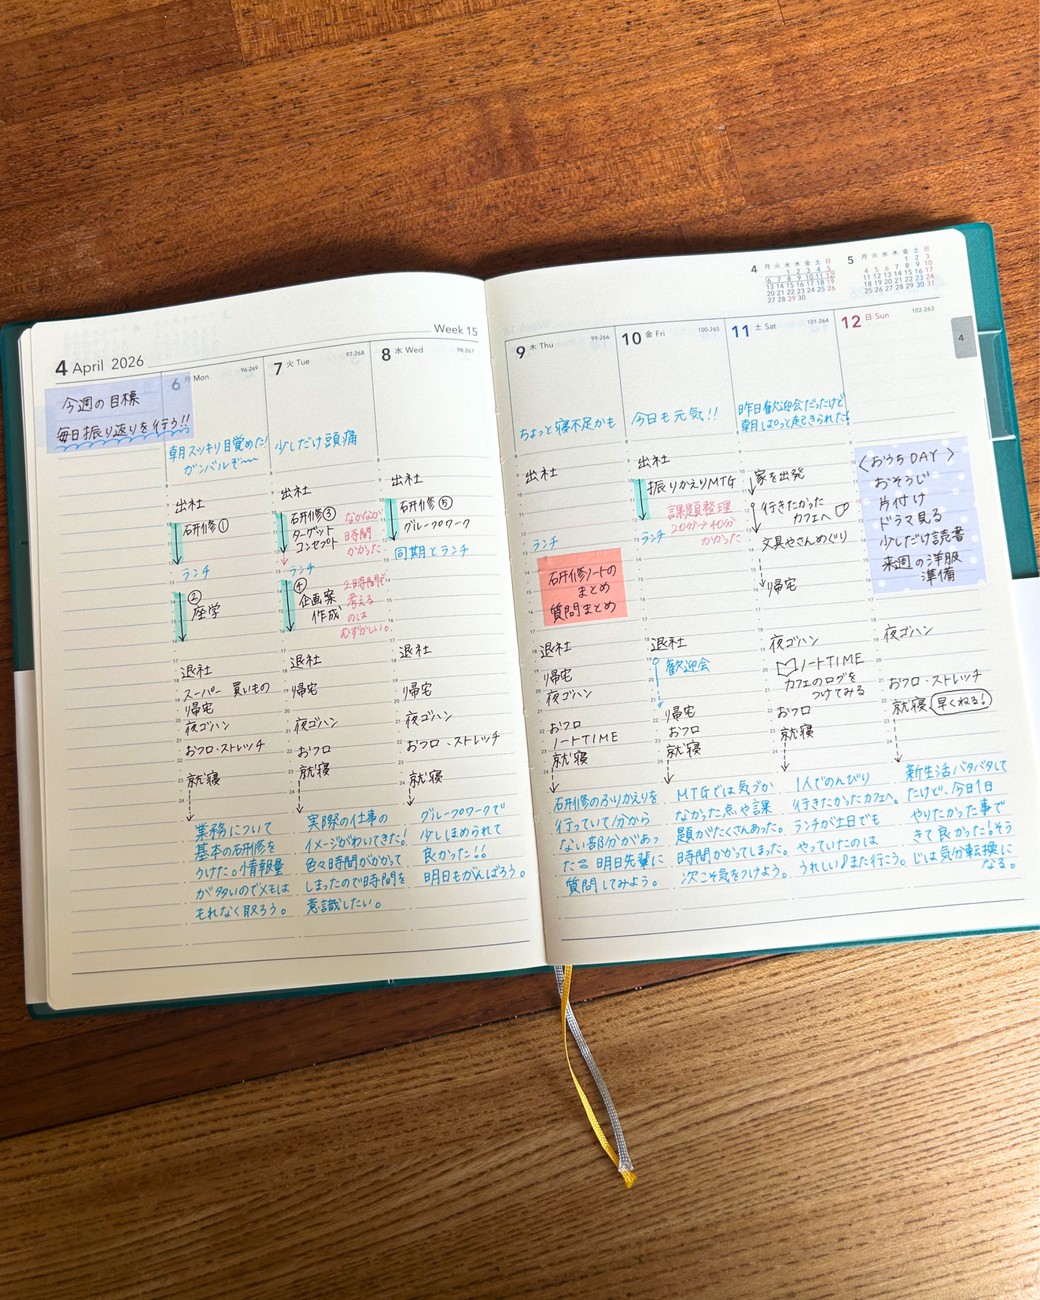 4 April 2026
Week 15
今週の目標
毎日振り返りを行う!!
6 月 Mon
96-269
朝スッキリ目覚めた!
ガンバルぞ〜
出社
研修①
ランチ
②
座学
退社
スーパー 買いもの
帰宅
夜ゴハン
おフロ・ストレッチ
就寝
業務について
基本の研修を
うけた。情報量
が多いのでメモは
もれなく取ろう。
7 火 Tue
97-268
少しだけ頭痛
出社
研修③
ターゲット
コンセプト
なかなか
時間
かかった
ランチ
④
企画案
作成
2時間で
考える
のは
むずかしい。
退社
帰宅
夜ゴハン
おフロ
就寝
実際の仕事の
イメージがわいてきた!
色々時間がかかって
しまったので時間を
意識したい。
8 水 Wed
98-267
出社
研修⑤
グループワーク
同期とランチ
退社
帰宅
夜ゴハン
おフロ・ストレッチ
就寝
グループワークで
少しほめられて
良かった!!
明日もがんばろう。
4
月 火 水 木 金 土 日
1 2 3 4 5
6 7 8 9 10 11 12
13 14 15 16 17 18 19
20 21 22 23 24 25 26
27 28 29 30
5
月 火 水 木 金 土 日
1 2 3
4 5 6 7 8 9 10
11 12 13 14 15 16 17
18 19 20 21 22 23 24
25 26 27 28 29 30 31
9 木 Thu
99-266
ちょっと寝不足かも
出社
ランチ
研修ノートの
まとめ
質問まとめ
退社
帰宅
夜ゴハン
おフロ
ノートTIME
就寝
研修のふりかえりを
行っていて分から
ない部分があっ
た。明日先輩に
質問してみよう。
10 金 Fri
100-265
今日も元気!!
出社
振りかえりMTG
課題整理
20分→40分
かかった
ランチ
退社
歓迎会
帰宅
おフロ
就寝
MTGでは気づか
なかった点や課
題がたくさんあった。
時間かかってしまった。
次こそ気をつけよう。
11 土 Sat
101-264
昨日歓迎会だったけど
朝しぱっと起きられた!
家を出発
行きたかった
カフェへ
文具やさんめぐり
帰宅
夜ゴハン
ノートTIME
カフェのログを
つけてみる
おフロ
就寝
1人でのんびり
行きたかったカフェへ。
ランチが土日でも
やっていたのは
うれしい♪また行こう。
12 日 Sun
102-263
4
〈おうちDAY〉
おそうじ
片付け
ドラマ見る
少しだけ読書
来週の洋服
準備
夜ゴハン
おフロ・ストレッチ
就寝 早くねる!
新生活バタバタして
たけど、今日1日
やりたかった事で
きて良かった!そう
じは気分転換に
なる。